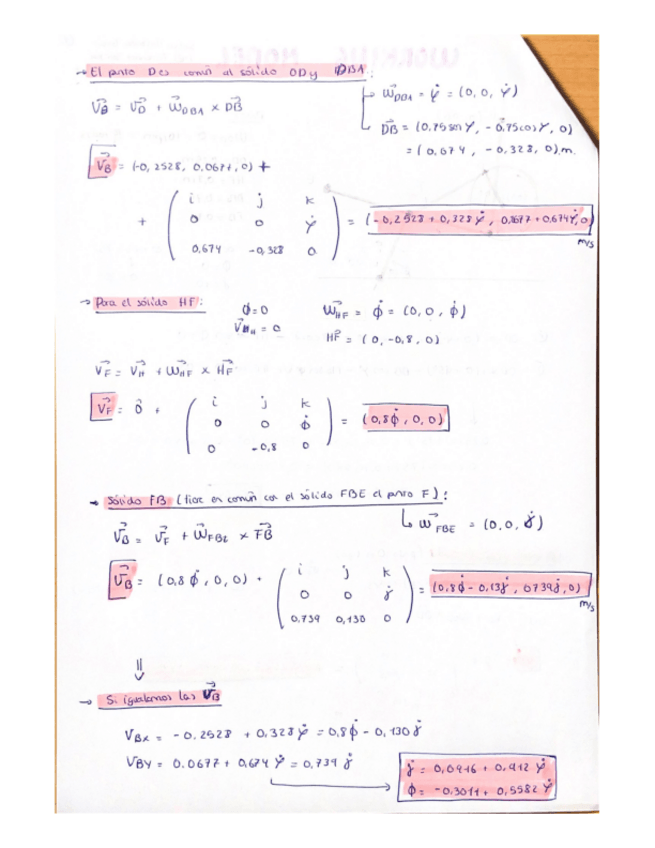 → El punto D es común al sólido OD y DBA:
V⃗B = V⃗D + W⃗DBA × D⃗B
→ W⃗DBA = ψ̇ = (0, 0, ψ̇)
D⃗B = (0,75 sen ψ, -0,75 cos ψ, 0)
= (0,674, -0,328, 0) m.
V⃗B = (-0,2528, 0,0677, 0) +
+ ( i j k
0 0 ψ̇
0,674 -0,328 0 ) = (-0,2528 + 0,328 ψ̇, 0,0677 + 0,674 ψ̇, 0) m/s
→ Para el sólido HF:
ϕ=0
V⃗H = 0
W⃗HF = ϕ̇ = (0, 0, ϕ̇)
H⃗F = (0, -0,8, 0)
V⃗F = V⃗H + W⃗HF × H⃗F
V⃗F = 0⃗ + ( i j k
0 0 ϕ̇
0 -0,8 0 ) = (0,8ϕ̇, 0, 0)
→ Sólido FB (tiene en común con el sólido FBE el punto F):
W⃗FBE = (0, 0, γ̇)
V⃗B = V⃗F + W⃗FBE × F⃗B
V⃗B = (0,8 ϕ̇, 0, 0) + ( i j k
0 0 γ̇
0,739 0,130 0 ) = (0,8ϕ̇ - 0,13γ̇, 0,739γ̇, 0) m/s
⇓
→ Si igualamos las V⃗B
VBx = -0.2528 + 0,328 ψ̇ = 0,8ϕ̇ - 0,130 γ̇
VBY = 0.0677 + 0,674 ψ̇ = 0,739 γ̇
γ̇ = 0,0916 + 0.912 ψ̇
ϕ̇ = -0.3011 + 0,5582 ψ̇